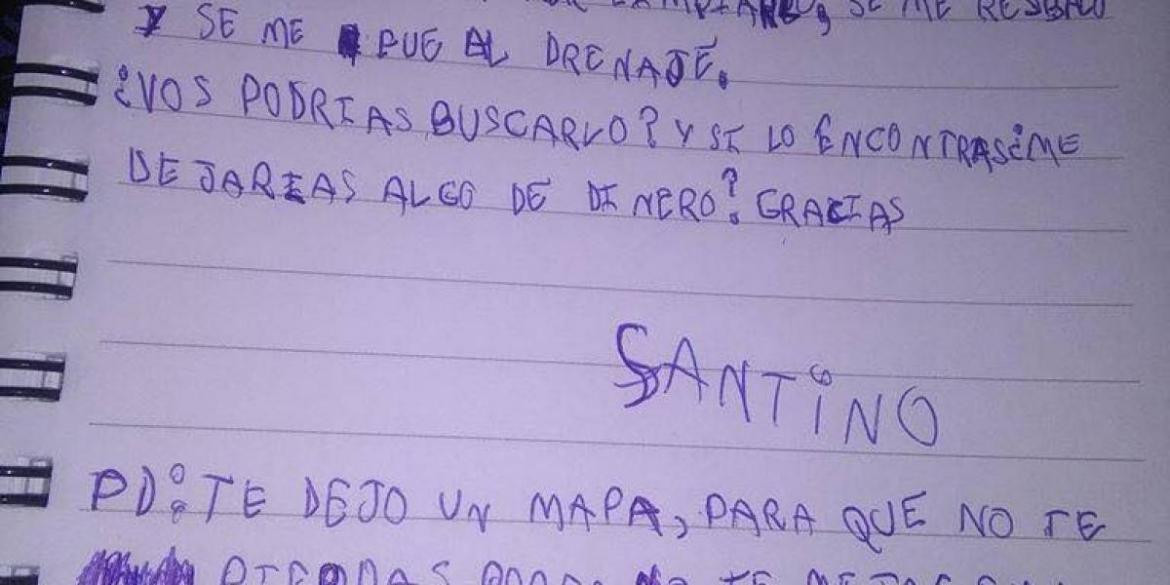 SE ME RESBALO
Y SE ME FUE AL DRENAJE.
¿VOS PODRIAS BUSCARLO? Y SI LO ENCONTRAS ¿ME
DEJARIAS ALGO DE DINERO? GRACIAS
SANTINO
PD: TE DEJO UN MAPA, PARA QUE NO TE
PIERDAS